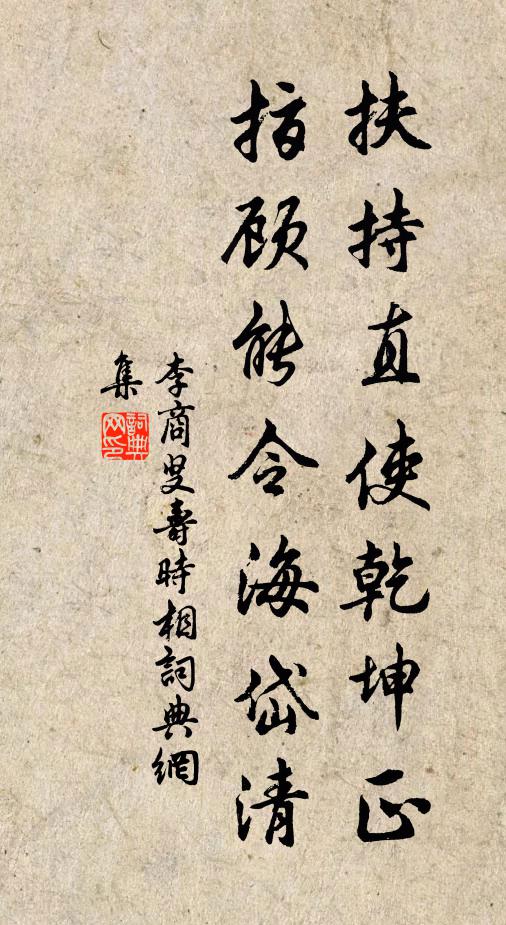 扶持直使乾坤正
指顾能令海岱清
李商叟壽時相詞典網
集
詞典
网印